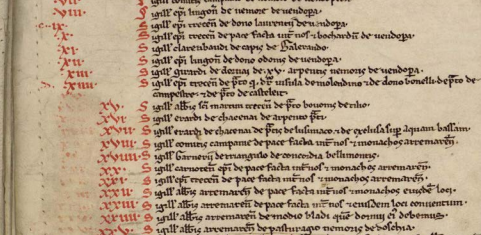 Sigill' ep̄i lingoń de nemore de uendopa.
.ix. Sigill' ep̄i trecen̄ de dono laurentii de uendopa.
.x. Sigill' ep̄i trecen̄ de pace facta int̄ nos ⁊ bochardū de uendopa.
.xi. Sigill' clarembaudi de capis de
.xii. Sigill' ep̄i lingoń de dono odonis de uendopa.
.xiii. Sigill' girardi de .xv. arpentis nemoris de uendopa.
.xiiii. Sigill' ep̄i trecen̄ de p̄to insula de molendino ⁊ de dono bonelli de p̄to de
campestre ⁊ de p̄to de casteleir
.xv. Sigill' abb̄is sc̄i martini trecen̄ de p̄to bouonis de rilio
.xvi. Sigill' erardi de chacenai de arpento p̄ti
.xvii. Sigill' erardi de chacenai de p̄tis de ⁊ de exclusa sup aquam bassam.
.xviii. Sigill' comitis campanie de pace facta int̄ nos ⁊ monachos arremareñ.
.xviiii. Sigill' garnerii de triangulo de concordia bellimontis.
.xx. Sigill' carnoteñ ep̄i de pace facta int̄ nos ⁊ monachos arremareñ.
.xxi. Sigill' ep̄i trecen̄ de pace facta int̄ nos ⁊ monachos arremareñ.
.xxii. Sigill' abb̄is arremareñ de pace facta int̄ nos ⁊ monachos eiusdē loci.
.xxiii. Sigill' abb̄is arremareñ de pace facta int̄ nos ⁊ eiusdem loci conuentum.
.xxiiii. Sigill' abb̄is arremareñ de modio bladi que domui ei debemus.
.xxv. Sigill' abb̄is arremareñ de pasturagio nemoris de doschia